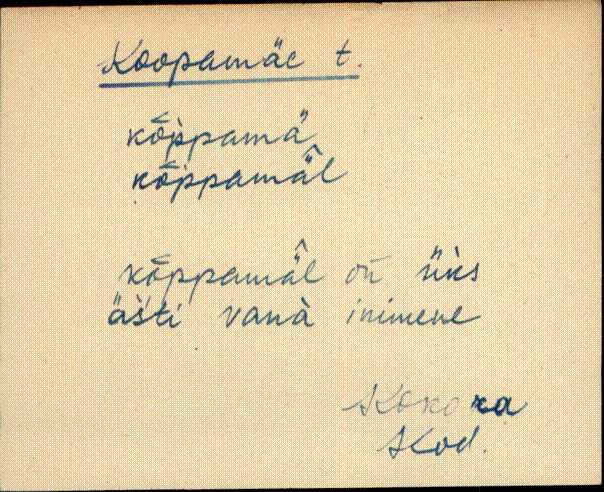 Koopamäe t.
kõ̭ppamä
kõ̭ppamä̭l
kõ̭ppamä̭l on üks
äs'ti vanà inimene
Kokora
Kod.